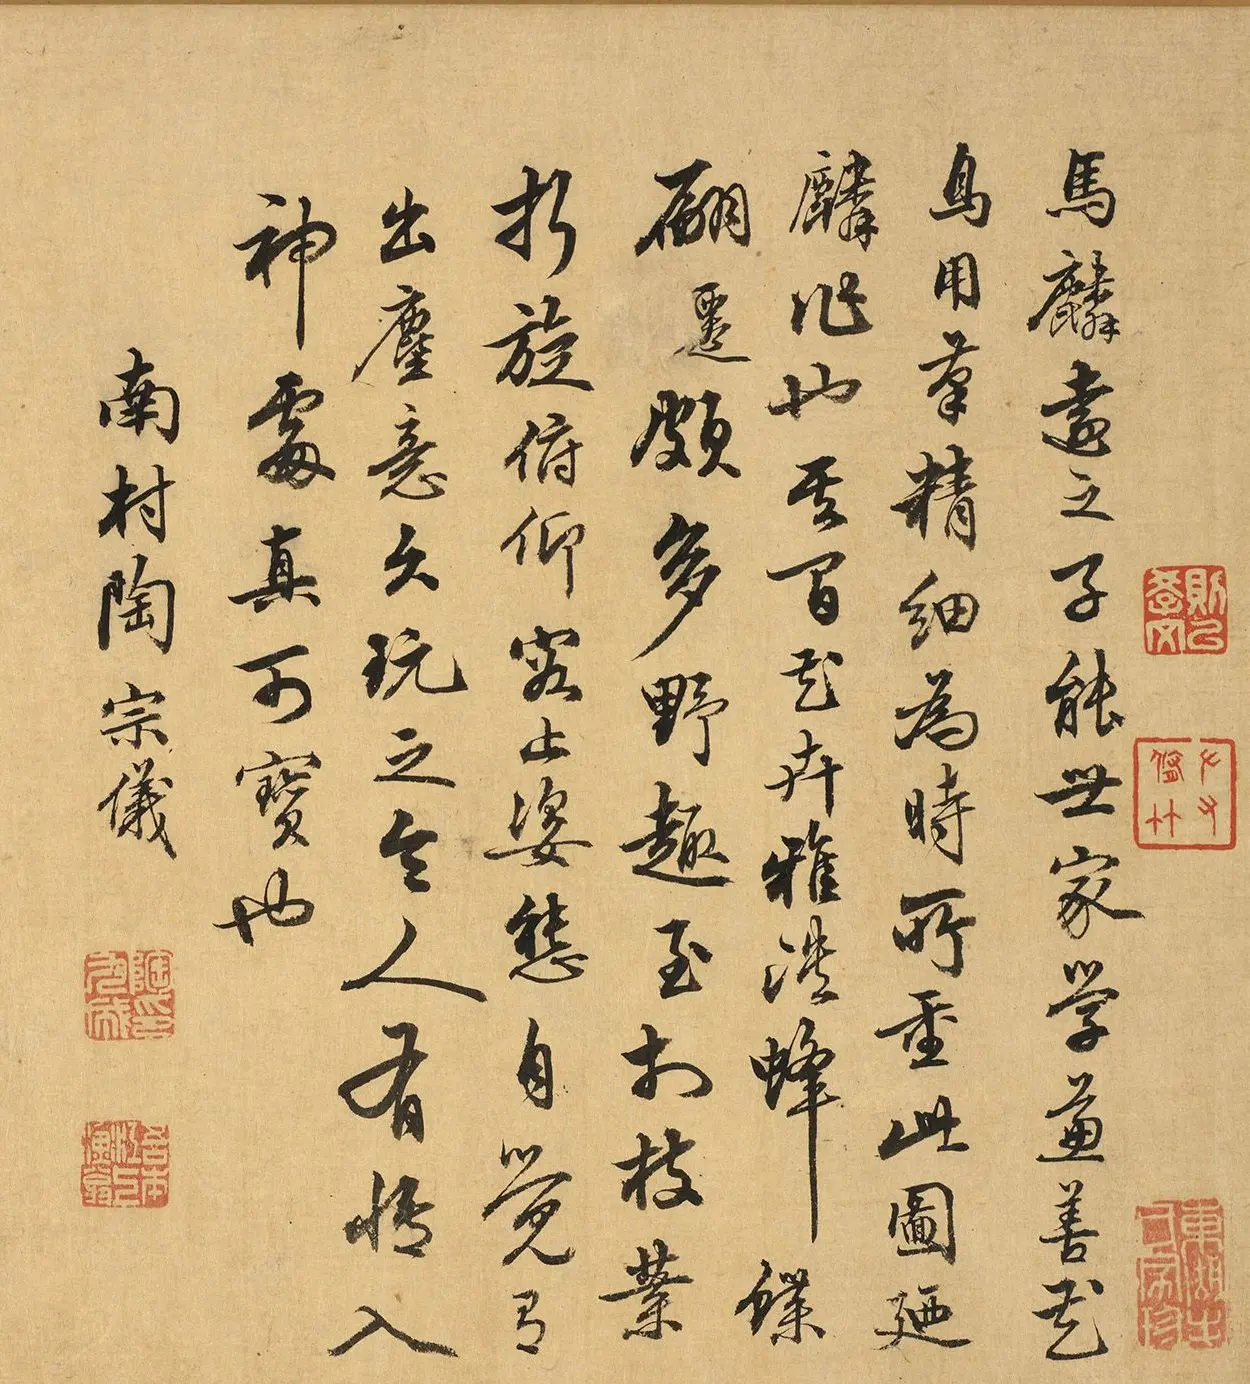 馬麟遠之子能世家學兼善花
鳥用筆精細為時所重此圖廼
麟作也其間花卉雅淡蜂蝶
翩躚頗多野趣至於枝葉
折旋俯仰容止姿態自覺有
出塵意久玩之令人有悟入
神處真可寶也
南村陶宗儀